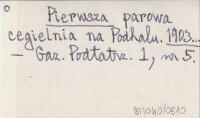 Pierwsza parowa
cegielnia na Podhalu. 1903...
— Gaz. Podtatrz. 1, nr 5.